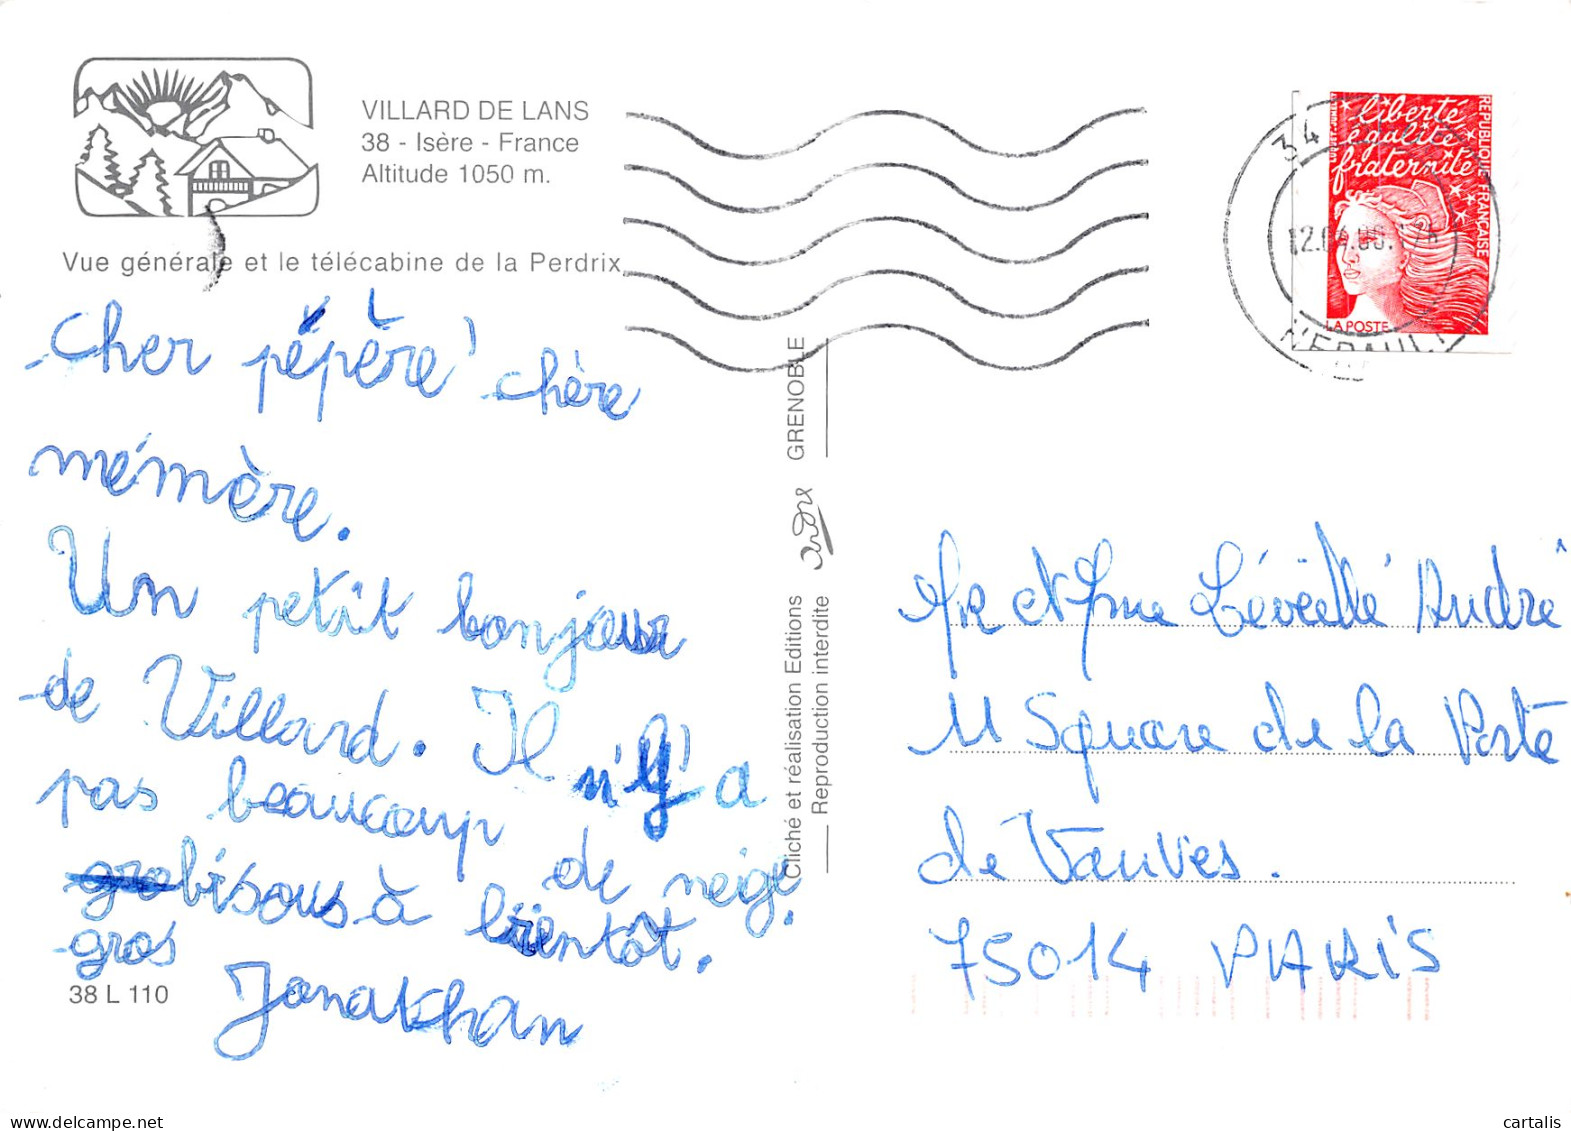 VILLARD DE LANS
38 - Isère - France
Altitude 1050 m.
Vue générale et le télécabine de la Perdrix
cher pépère chère
mémère.
Un petit bonjour
de Villard. Il n'y a
pas beaucoup de neige.
gro bisous à bientôt.
gros
Jonathan
38 L 110
GRENOBLE
André
Cliché et réalisation Editions
Reproduction interdite
liberté
égalité
fraternité
RÉPUBLIQUE FRANÇAISE
LA POSTE
34
HERAULT
Mr et Mme Léveillé André
11 Square de la Porte
de Vanves.
75014 PARIS
cartalis